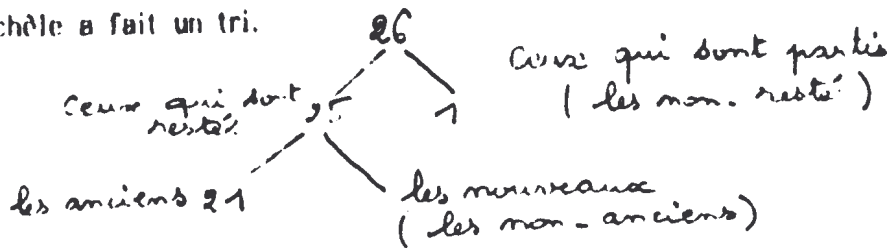 chèle a fait un tri.
26
Ceux qui sont partis
( les non-resté )
Ceux qui sont
resté
25
1
les anciens 21
les nouveaux
( les non-anciens)